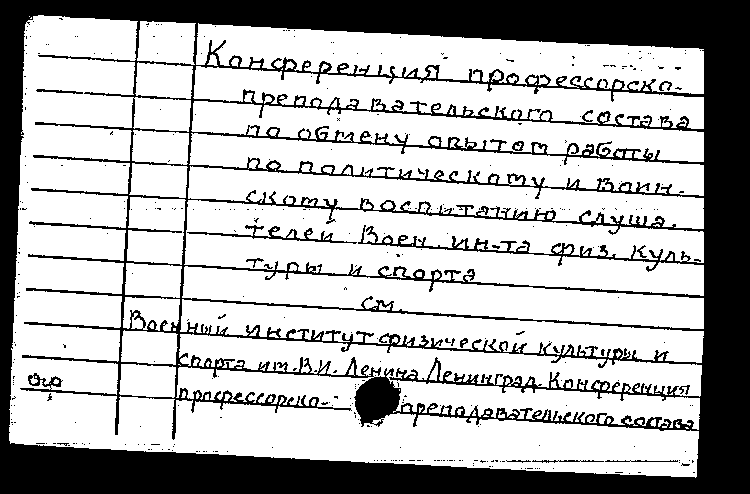 Конференция профессорско-
преподавательского состава
по обмену опытом работы
по политическому и воин-
скому воспитанию слуша-
телей Воен. ин-та физ. куль-
туры и спорта
см.
Военный институт физической культуры и
спорта им. В.И. Ленина, Ленинград. Конференция
профессорско- преподавательского состава